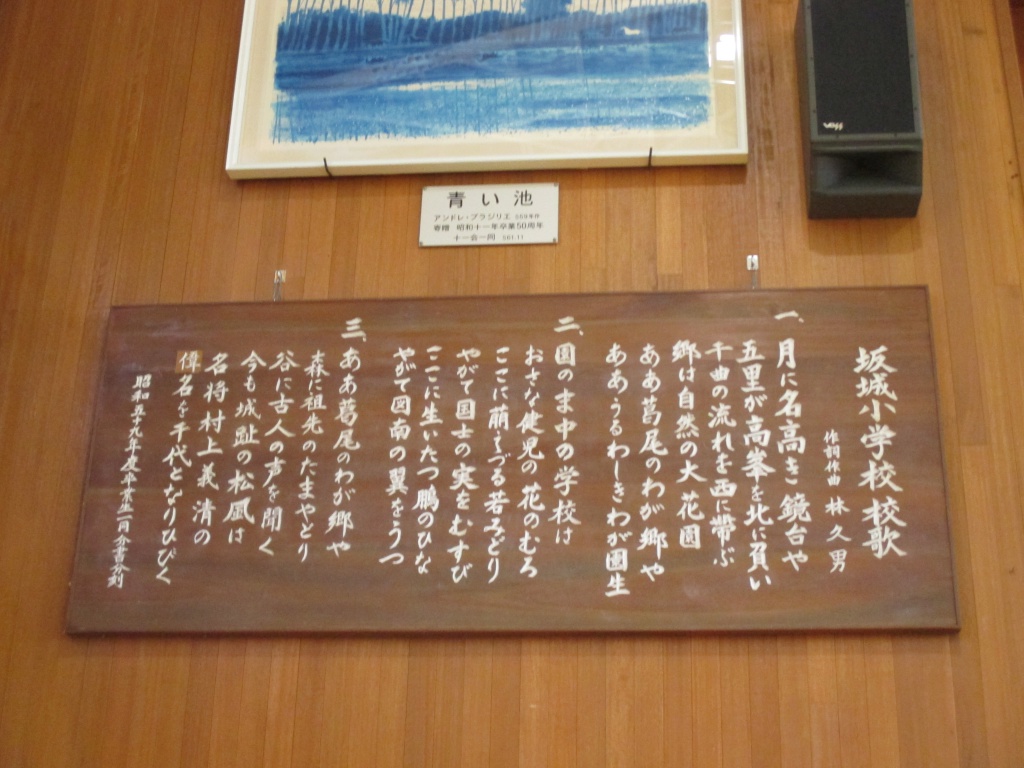 青い池
アンドレ・ブラジリエ
寄贈 昭和十一年卒業50周年
十一会一同 S61.11
坂城小学校校歌
作詞作曲 林久男
一、
月に名高き鏡台や
五里が高峯を北に負い
千曲の流れを西に帶ぶ
郷は自然の大花園
ああ葛尾のわが郷や
ああうるわしきわが園生
二、園のま中の学校は
おさな健児の花のむろ
ここに萠えづる若みどり
やがて国士の実をむすび
ここに生いたつ鵬のひな
やがて図南の翼をうつ
三、ああ葛尾のわが郷や
森に祖先のたまやどり
谷に古人の声を聞く
今も城趾の松風は
名将村上義清の
偉名を千代となりひびく
昭和五十九年度卒業生一同